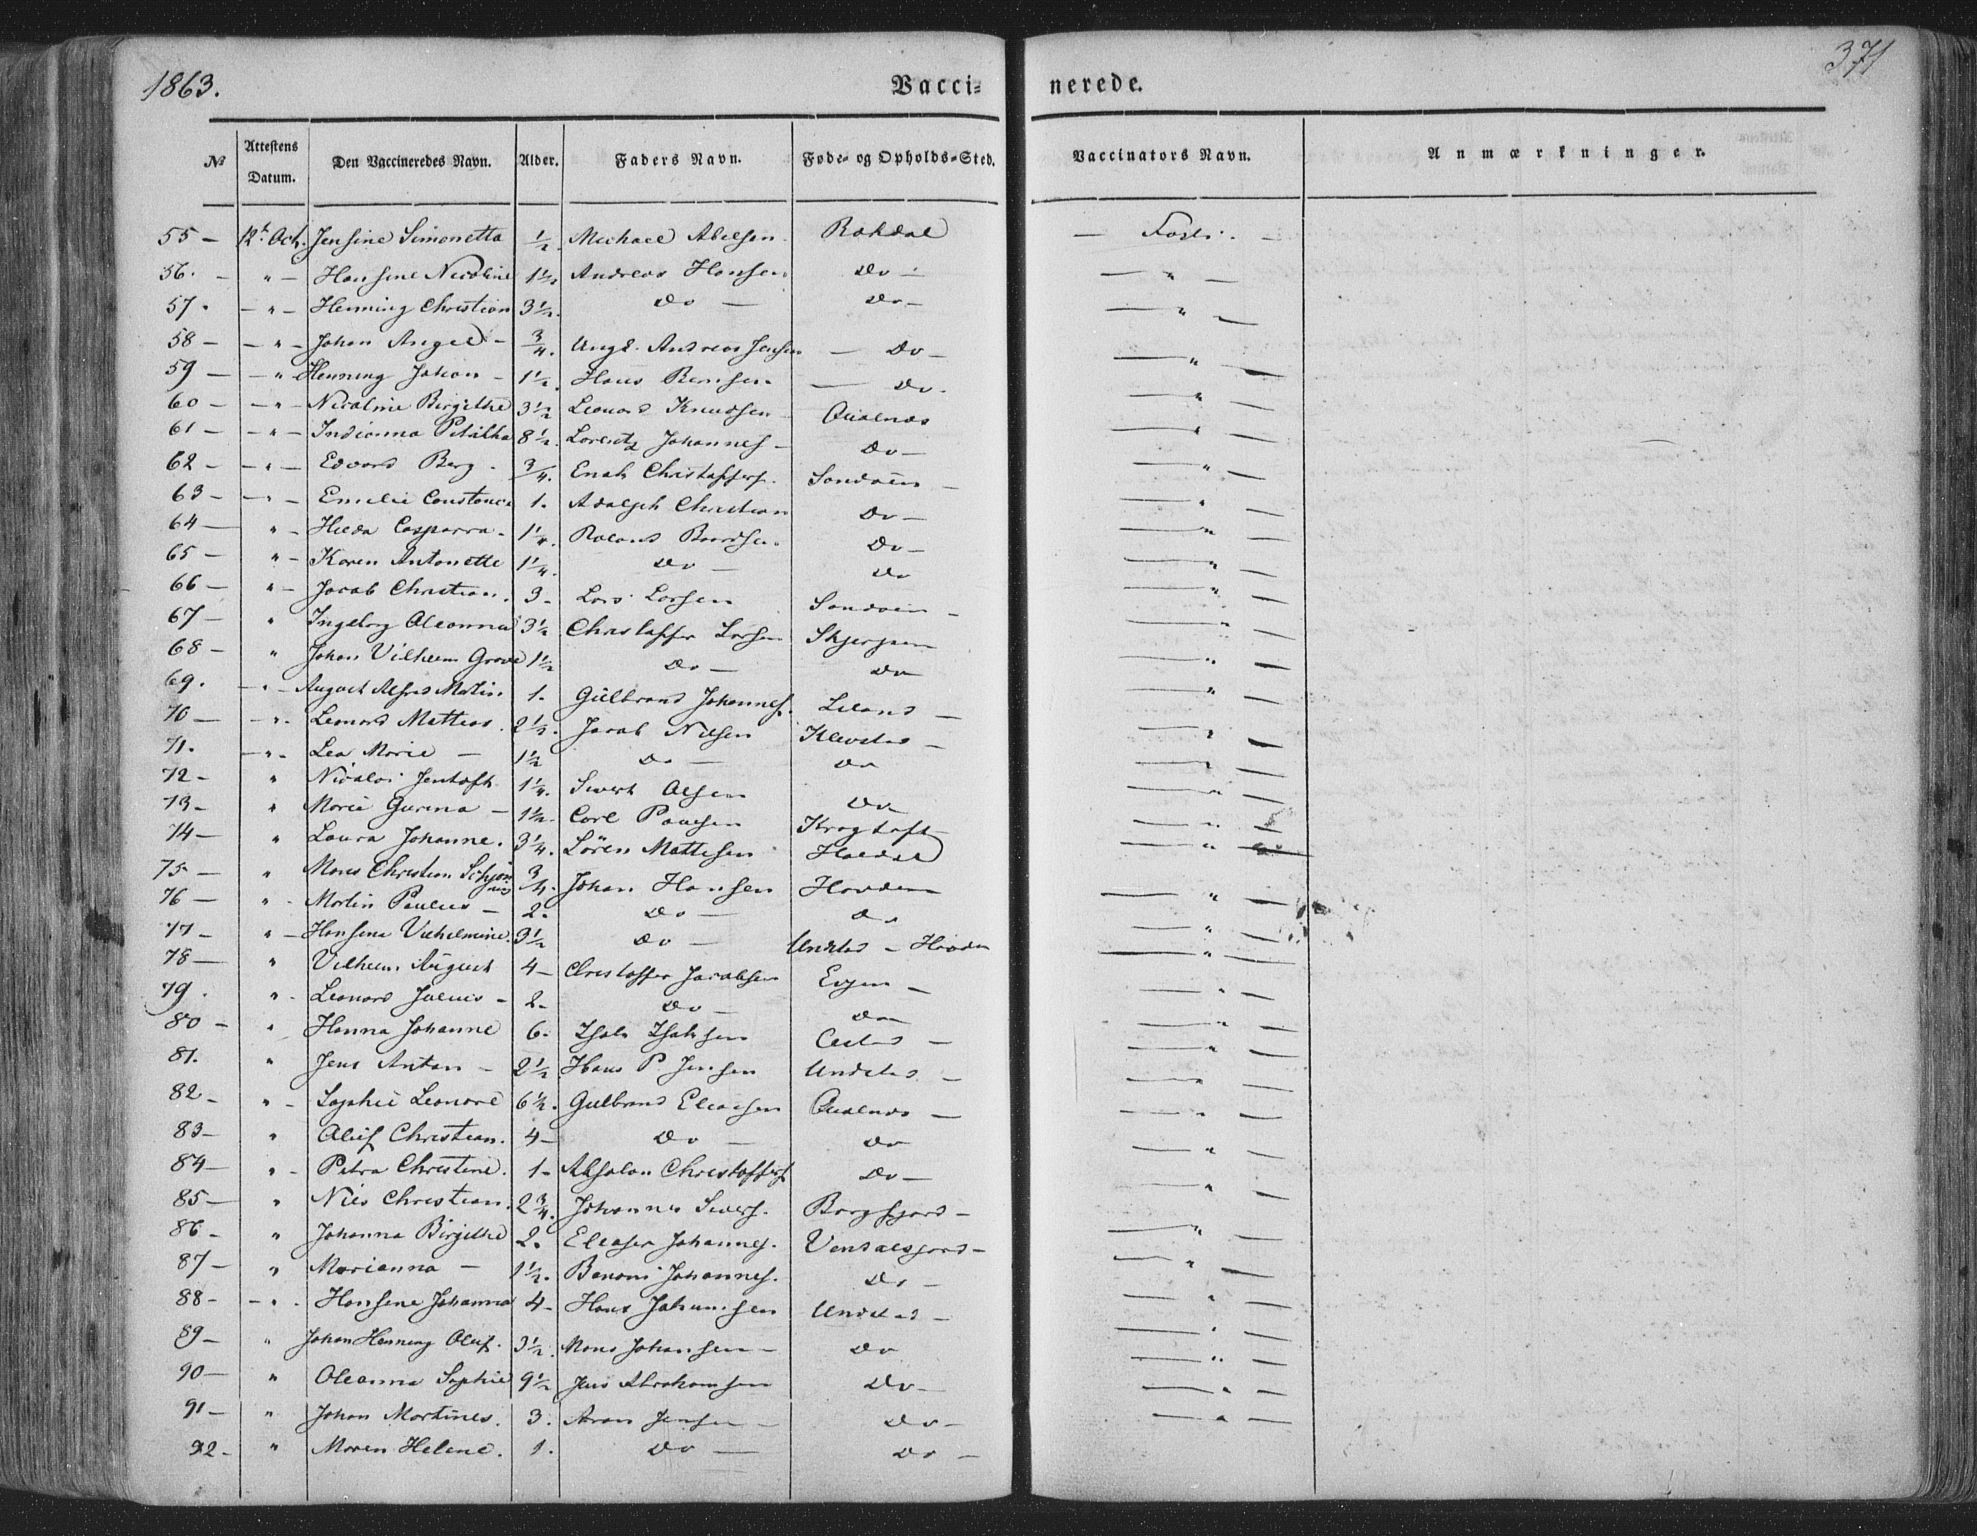 1863.
Vacci-
nerede.
371
No
Attestens Datum.
Den Vaccineredes Navn.
Alder.
Faders Navn.
Føde- og Opholds-Sted.
Vaccinators Navn.
Anmærkninger.
55 — 12t Oct. Jensine Simonetta ½ Michael Abelsen Rokdal —
56. — " — Hansine Nicoline 1½ Andreas Hansen Do — — " —
57. — " — Henning Christian 3½. Do — Do — — " —
58 — — " — Johan Angel — ¾. Ungk. Andreas Jensen — Do — — " —
59 — — " Henning Johan — 1½. Hans Bensen — Do. — " —
60 — — " — Nicoline Birgithe 3½ Leonard Knudsen Qualnæs — " —
61 — — " — Indianna 8½. Lorentz Johannes — Do — — " —
62 — — " — Edvard Berg. ¾. Enok Christoffers. Sandøen — — " —
63 — — " — Emelie Constance 1. Adolph Christian Do — — " —
64 — " — Hilda Casparra. 1¼. Roland Baardsen. Do — — " —
65 — " — Karen Antonette 1¼. Do — Do — " —
66 — " — Jacob Christian. 3 — Lars Larsen Sandøen — — " —
67 — " Ingeborg Oleanna 3½ Christoffer Larsen Skjerpen — " —
68 — " Johan Vilhelm Grove 1½ Do — Do — " —
69. — " — August Alfred Martin. 1. Gulbrand Johannes. Leland — — " —
70 — — " — Leonard Mathias. 2½. Jacob Nilsen Klevstad — — " —
71. — " — Lea Marie — 1½ Do — Do — " —
72 — " Nicolai Jentoft 1¼. Sivert Olsen Do — " —
73 — " Marie Gurina — 1½. Carl Paulsen Krogtoft — " —
74 — " Laura Johanne. 3¼. Sören Mathisen Holdal — " —
75 — " Mons Christian Schjønning ¾. Johan Hansen Hovden — " —
76 — " — Martin Paulus — 2. Do — Do — " —
77 — " — Hansena Vilhelmine. 3½ Do — Undstad — Hovden — " —
78 — " Vilhelm August 4 — Christoffer Jacobsen Evjen — — " —
79. " — Leonard Julius — 2 — Do — Do — " —
80 — " Hanna Johanne 6. Isak Isaksen — — " —
81. " Jens Anton — 2½ Hans P. Jensen Undstad — — " —
82 — " — Sophie Leonore 6½. Gulbrand Eliasen Qualnæs — — " —
83 — " Oluf Christian. 4 — Do — Do — " —
84 — " — Petra Christine. 1 — Absalon Christoffers Do — — " —
85 — " Nils Christian. 2¾. Johannes Sivers. Borgfjord — — " —
86 — " Johanna Birgithe 2. Eliaser Johannes. Vendalsjord — — " —
87 — " Marianna — 1½. Benoni Johannes. Do — — " —
88 — — " — Hansine Johanna 4 — Hans Johansen Undstad — — " —
89 — " Johan Henning Oluf. 3½. Mons Johansen — Do — " —
90 — " Oleanna Sophie 9½ Jens Abrahamsen Do — — " —
91 — " Johan Martines. 3. Aron Jensen — Do — — " —
92 — " Maren Helene. 1. Do — Do —